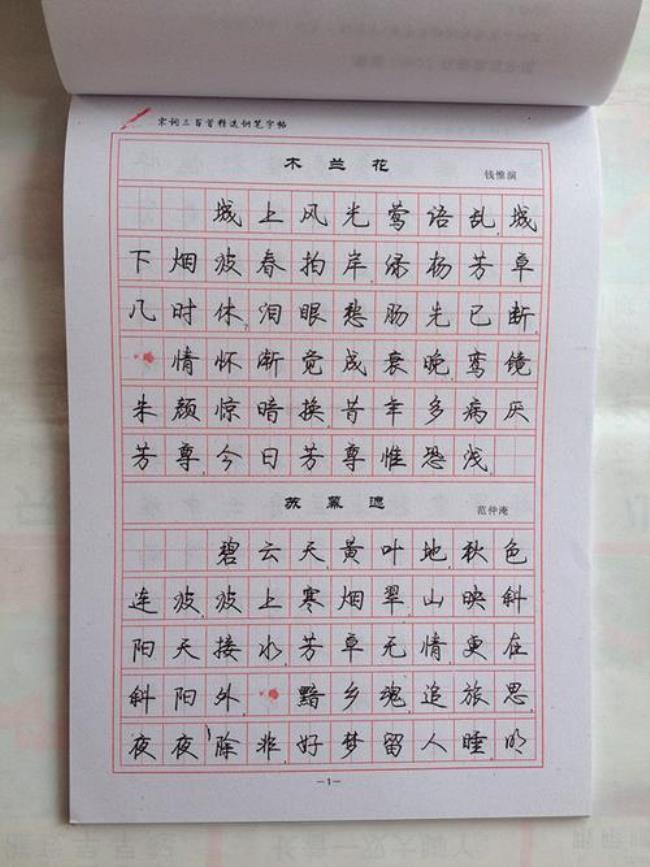 宋词三百首精选钢笔字帖
木兰花
钱惟演
城上风光莺语乱,城
下烟波春拍岸.绿杨芳草
几时休?泪眼愁肠先已断.
情怀渐觉成衰晚,鸾镜
朱颜惊暗换.昔年多病厌
芳尊,今日芳尊惟恐浅.
苏幕遮
范仲淹
碧云天,黄叶地,秋色
连波,波上寒烟翠.山映斜
阳天接水,芳草无情,更在
斜阳外.黯乡魂,追旅思.
夜夜除非,好梦留人睡.明
—1—